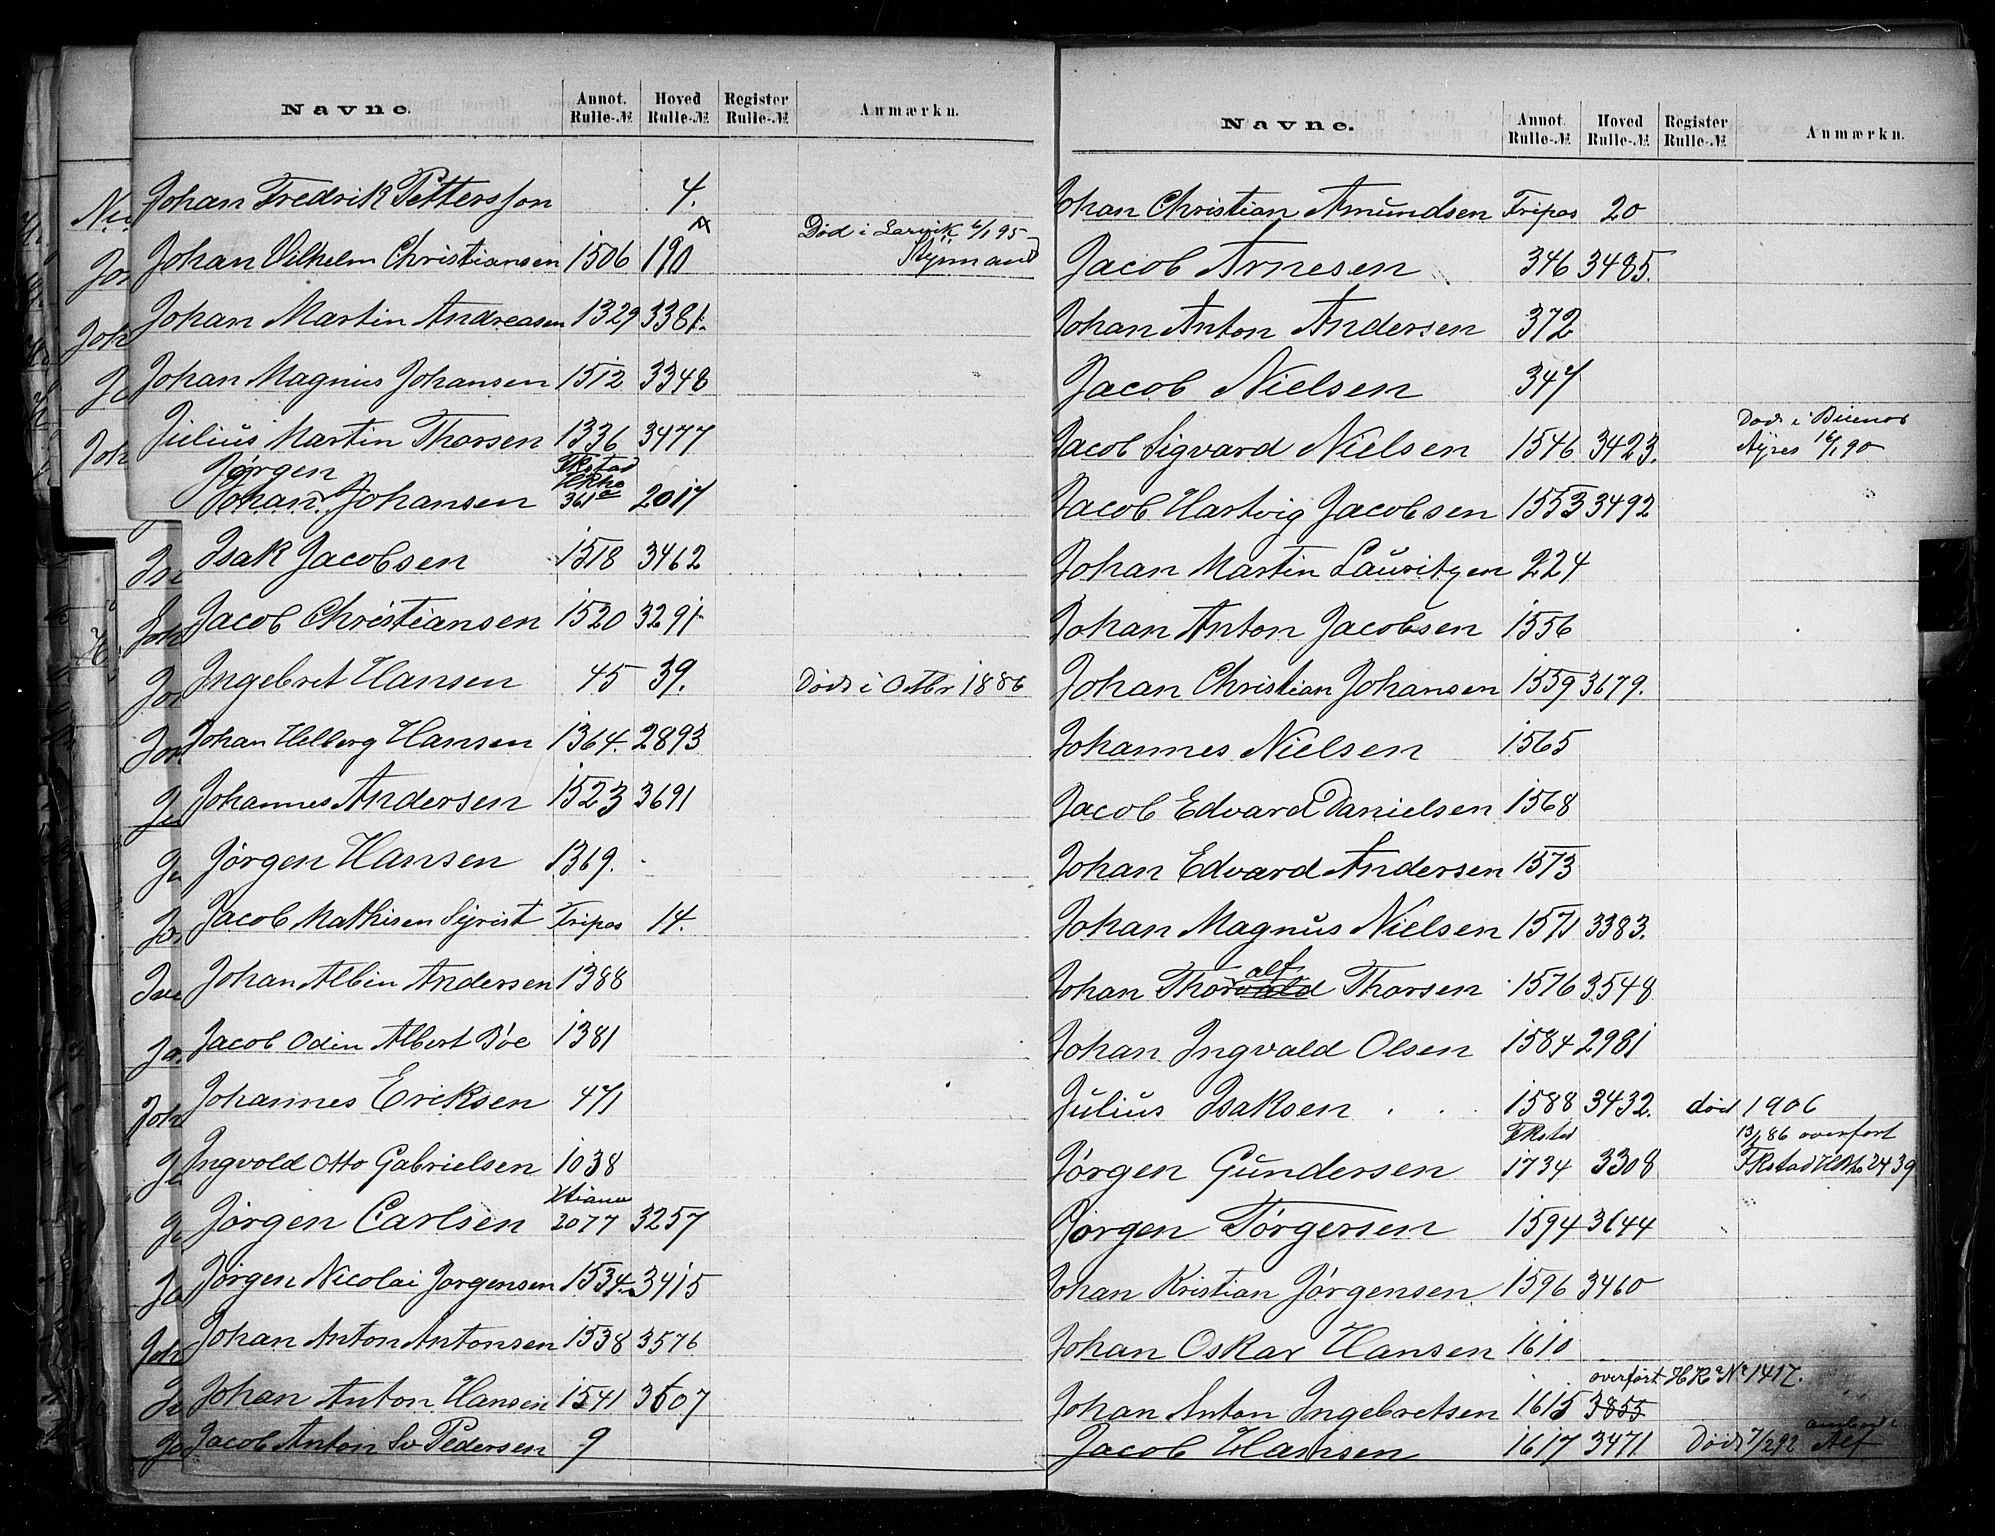 Navne. Annot. Rulle-№ Hoved Rulle-№ Register Rulle-№ Anmærkn.
Johan Fredrik Pettersson 4.
Johan Vilhelm Christiansen 1506 190 Død i Larvik 6/1 95 Styrmand
Johan Martin Andreasen 1329 3381.
Johan Magnus Johansen 1512 3348
Julius Martin Thorsen 1336 3477
Jørgen
Johan Johansen Fkstad 361 2017
Isak Jacobsen 1518 3462
Jacob Christiansen 1520 3291
Ingebret Hansen 45 39. Død i Octbr 1886
Johan Helberg Hansen 1364 2893
Johannes Andersen 1523 3691
Jørgen Hansen 1369.
Jacob Mathisen Syrist Fripas 14.
Johan Albin Andersen 1388
Jacob Odin Albert Bøe 1381
Johannes Eriksen 471
Ingvold Otto Gabrielsen 1038
Jørgen Carlsen Xtiania 2077 3257
Jørgen Nicolai Jørgensen 1534 3415
Johan Anton Antonsen 1538 3576
Johan Anton Hansen 1541 3507
Jacob Anton Sv Pedersen 9
Navne. Annot. Rulle-№ Hoved Rulle-№ Register Rulle-№ Anmærkn.
Johan Christian Amundsen Fripas 20
Jacob Arnesen 346 3485.
Johan Anton Andersen 372
Jacob Nielsen 347
Jacob Sigvard Nielsen 1546 3423. Død i Buenos Ayres 16/1 90
Jacob Hartvig Jacobsen 1553 3492
Johan Martin Lauritzen 224
Johan Anton Jacobsen 1556
Johan Christian Johansen 1559 3679.
Johannes Nielsen 1565
Jacob Edvard Danielsen 1568
Johan Edvard Andersen 1573
Johan Magnus Nielsen 1571 3383.
alf
Johan Thorvald Thorsen 1576 3548
Johan Ingvald Olsen 1584 2981
Julius Isaksen 1588 3432. død 1906
Fkstad 13/1 86 overført
Jørgen Gundersen 1734 3308 Fkstad 2439
Jørgen Torgersen 1594 3644
Johan Kristian Jørgensen 1596 3460
Johan Oskar Hansen 1610
overført H R No 1417.
Johan Anton Ingebretsen 1615 3855
Jacob Hansen 1617 3471 Død 7/2 92